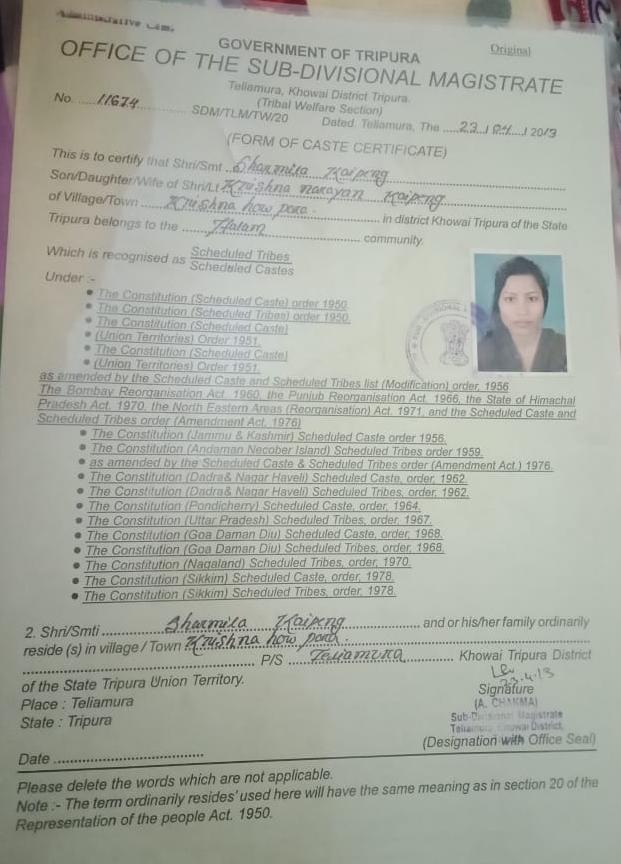 Administrative Cam.
Original
GOVERNMENT OF TRIPURA
OFFICE OF THE SUB-DIVISIONAL MAGISTRATE
Teliamura, Khowai District Tripura.
(Tribal Welfare Section)
No. 11674 SDM/TLM/TW/20 Dated. Teliamura, The 23/04/2013
(FORM OF CASTE CERTIFICATE)
This is to certify that Shri/Smt Sharmila Kaipeng
Son/Daughter/Wife of Shri/Lt Krishna narayan Kaipeng
of Village/Town Krishna how para. in district Khowai Tripura of the State
Tripura belongs to the Halam community.
Which is recognised as Scheduled Tribes
Scheduled Castes
Under :-
• The Constitution (Scheduled Caste) order 1950
• The Constitution (Scheduled Tribes) order 1950.
• The Constitution (Scheduled Caste)
• (Union Territories) Order 1951.
• The Constitution (Scheduled Caste)
• (Union Territories) Order 1951.
as amended by the Scheduled Caste and Scheduled Tribes list (Modification) order, 1956
The Bombay Reorganisation Act. 1960, the Punjub Reorganisation Act. 1966, the State of Himachal
Pradesh Act. 1970, the North Eastern Areas (Reorganisation) Act. 1971, and the Scheduled Caste and
Scheduled Tribes order (Amendment Act. 1976)
• The Constitution (Jammu & Kashmir) Scheduled Caste order 1956.
• The Constitution (Andaman Necober Island) Scheduled Tribes order 1959.
• as amended by the Scheduled Caste & Scheduled Tribes order (Amendment Act.) 1976.
• The Constitution (Dadra& Nagar Haveli) Scheduled Caste, order, 1962.
• The Constitution (Dadra& Nagar Haveli) Scheduled Tribes, order, 1962.
• The Constitution (Pondicherry) Scheduled Caste, order, 1964.
• The Constitution (Uttar Pradesh) Scheduled Tribes, order, 1967.
• The Constitution (Goa Daman Diu) Scheduled Caste, order, 1968.
• The Constitution (Goa Daman Diu) Scheduled Tribes, order, 1968.
• The Constitution (Nagaland) Scheduled Tribes, order, 1970.
• The Constitution (Sikkim) Scheduled Caste, order, 1978.
• The Constitution (Sikkim) Scheduled Tribes, order, 1978.
2. Shri/Smti Sharmila Kaipeng and or his/her family ordinarily
reside (s) in village / Town Krishna how para.
P/S Teliamura Khowai Tripura District
of the State Tripura Union Territory.
Place : Teliamura
State : Tripura
23.4.13
Signature
(A. CHAKMA)
Sub-Divisional Magistrate
Teliamura, Khowai District,
(Designation with Office Seal)
Date
Please delete the words which are not applicable.
Note :- The term ordinarily resides' used here will have the same meaning as in section 20 of the
Representation of the people Act. 1950.